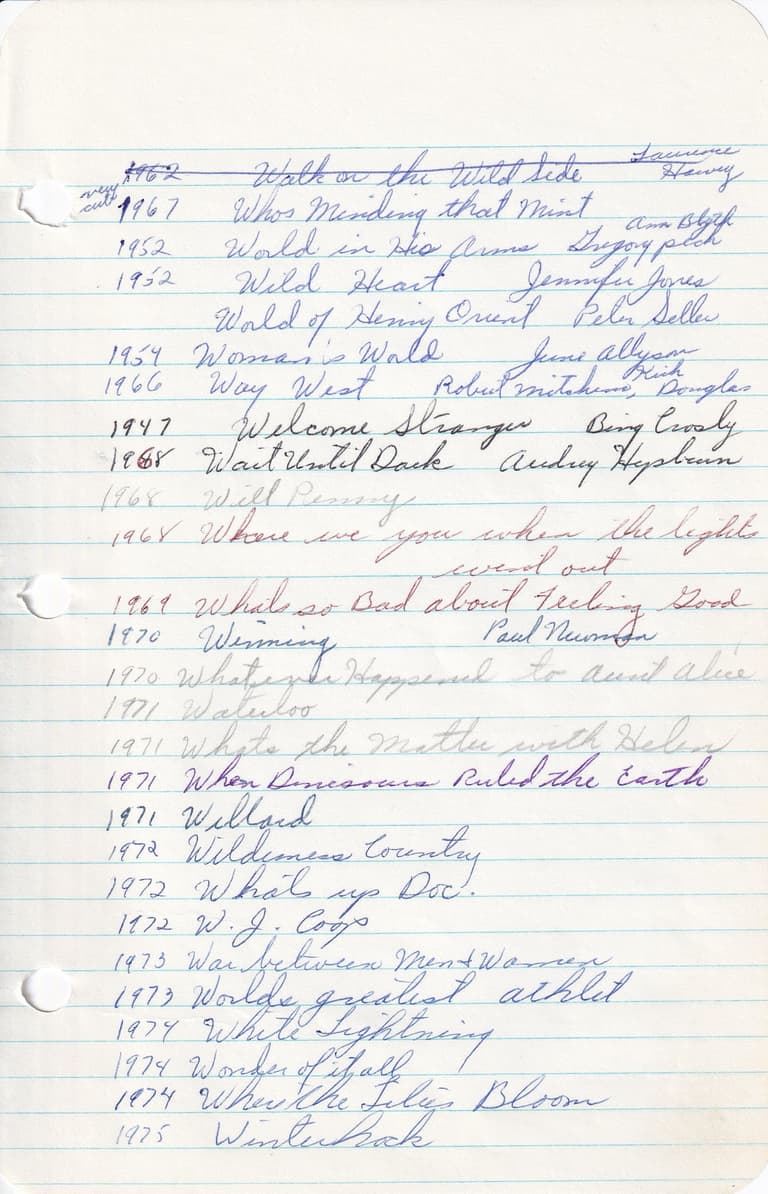 Laurence
1962 Walk on the Wild Side Harvey
very
cute
1967 Whos Minding that Mint
Ann Blyth
1952 World in His Arms Gregory peck
1952 Wild Heart Jennifer Jones
World of Henry Orient Peter Seller
1954 Woman's World June Allyson
1966 Way West Robert Mitchum, Kirk Douglas
1947 Welcome Stranger Bing Crosby
1968 Wait Until Dark Audrey Hepburn
1968 Will Penny
1968 Where we you when the lights
went out
1969 Whats so Bad about Feeling Good
1970 Winning Paul Newman
1970 Whatever Happened to Aunt Alice
1971 Waterloo
1971 Whats the Matter with Helen
1971 When Dinisours Ruled the Earth
1971 Willard
1972 Wilderness Country
1972 What's up Doc.
1972 W. J. Coop
1973 War between Men & Women
1973 Worlds greatest athlet
1974 White Lightning
1974 Wonder of it all
1974 Where the Lilies Bloom
1975 Winterhawk